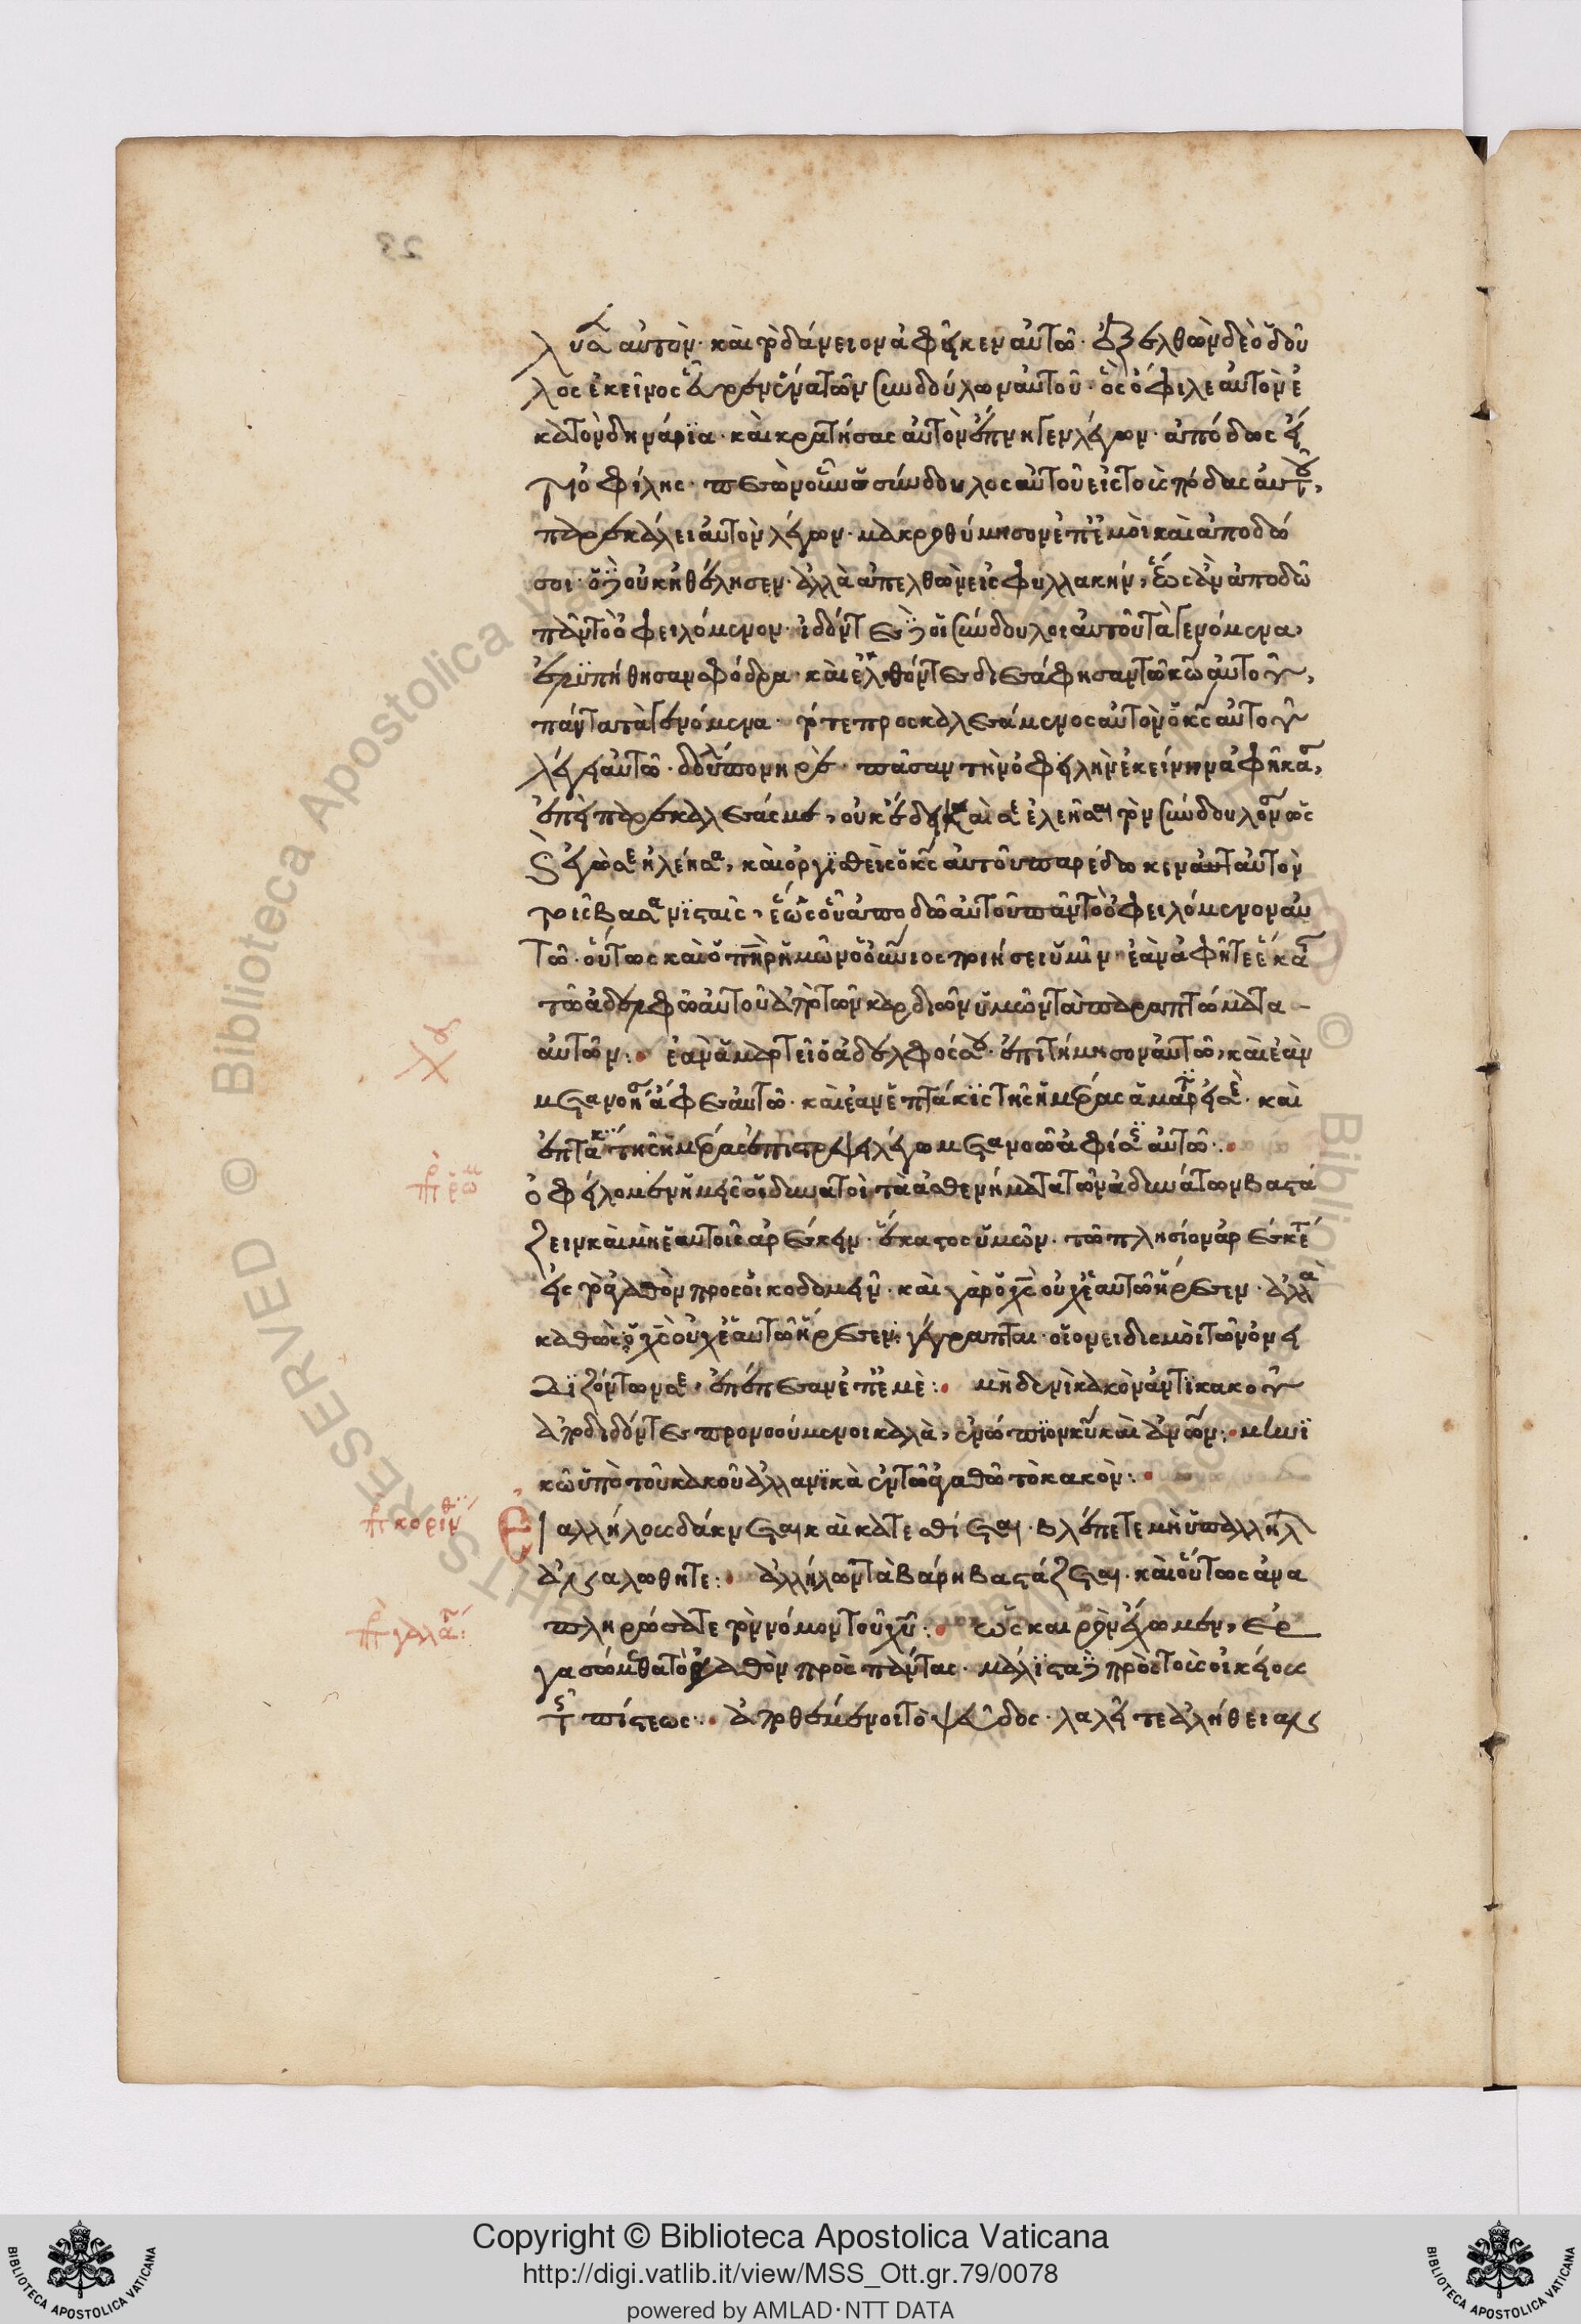 λύσας αὐτὸν· καὶ τὸ δάνειον ἀφῆκεν αὐτῶ· ἐξελθὼν δὲ ὁ δοῦ
λος ἐκεῖνος εὗρεν ἕνα τῶν συνδούλων αὐτοῦ· ὃς ὄφιλε αὐτὸν ἑ
κατὸν δηνάρϊα· καὶ κρατήσας αὐτὸν ἔπνηγεν λέγων· ἀπόδως εἴ
τι ὀφίλης· πεσὼν οὖν ὁ σύνδουλος αὐτοῦ εἰς τοὺς πόδας αὐτοῦ,
παρεκάλει αὐτὸν λέγων· μακροθύμησον ἐπ' ἐμοὶ καὶ ἀποδώ
σοι· ὁ δὲ οὐκ ἠθέλησεν· ἀλλὰ ἀπελθὼν εἰς φυλλακήν, ἕως ἂν ἀποδῶ
πᾶν τὸ ὀφειλόμενον· ἰδόντες δὲ οἱ σύνδουλοι αὐτοῦ τὰ γενόμενα,
ἐλυπήθησαν σφόδρα· καὶ ἐλθόντες διεσάφησαν τῶ κῶ αὐτοῦ,
πάντα τὰ γενόμενα· τότε προσκαλεσάμενος αὐτὸν ὁ κς αὐτοῦ
λέγει αὐτῶ· δοῦλε πονηρὲ· πᾶσαν τὴν ὀφειλὴν ἐκείνην ἀφῆκά σοι,
ἐπεὶ παρεκάλεσάς με, οὐκ ἔδει καὶ σὲ ἐλεῆσαι τὸν σύνδουλόν σου ὡς
καὶ ἐγὼ σὲ ἠλέησα, καὶ ὀργϊσθεὶς ὁ κς αὐτοῦ παρέδωκεν αὐτὸν
τοῖς βασανϊσταῖς, ἕως οὗ ἀποδῶ αὐτοῦ πᾶν τὸ ὀφειλόμενον αὐ
τῶ· οὕτως καὶ ὁ πηρ ἡμῶν ὁ οὐνιος ποιήσει ὑμῖν ἐὰν ἀφῆτε ἕκασ
τῶ ἀδελφῶ αὐτοῦ ἀπὸ τῶν καρδιῶν ὑμῶν τὰ παραπτώματα
αὐτῶν:· ἐὰν ἁμαρτεῖ ὁ ἀδελφός σου· ἐπιτήμησον αὐτῶ, καὶ ἐὰν
μετανοήση ἄφες αὐτῶ· καὶ ἐὰν ἑπτάκϊς τῆς ἡμέρας ἁμαρτήσει σὲ· καὶ
ἑπτάκϊς τῆς ἡμέρας ἐπιστρέψει λέγω μετανοῶ ἀφίσεις αὐτῶ:·
ὀφείλομεν ἡμεῖς οἱ δυνατοὶ τὰ ἀσθενήματα τῶν ἀδυνάτων βαστά
ζειν καὶ μὴ ἑαυτοῖς ἀρέσκειν· ἕκαστος ὑμῶν· τῶ πλησίον ἀρεσκέτ
εἰς τὸ ἀγαθὸν πρὸς οἰκοδομεὴν· καὶ γὰρ ὁ χς οὐχ ἑαυτῶ ἤρεσεν· ἀλλὰ
καθὼς ὁ χς οὐχ ἑαυτῶ ἤρεσεν· γέγραπται· οἱ ὀνειδισμοὶ τῶν ὀνει
δϊζόντων σε, ἐπέπεσαν ἐπ' ἐμὲ:· μὴδενὶ κακὸν ἀντϊκακοῦ
ἀποδιδόντες προνοούμενοι καλὰ, ἐνώπϊον κυ καὶ ἀνων:· μὴ νϊ
κῶ ὑπὸ τοῦ κακοῦ ἀλλα νϊκὰ ἐν τῶ ἀγαθῶ τὸ κακὸν:·
Εἰ ἀλλήλους δάκνεται καὶ κατεσθίεται· βλέπετε μὴ ὑπ' ἀλλήλ
ἀναλωθητε:· ἀλλήλων τὰ βάρη βαστάζεται· καὶ οὕτως ἀνα
πληρώσατε τὸν νόμον τοῦ χυ:· ὡς καιρὸν ἔχωμεν, ἐρ
γασώμεθα τὸ ἀγαθὸν πρὸς πάντας· μάλϊστα δὲ πρὸς τοὺς οἰκείους
τῆς πίστεως:· ἀποθέμενοι τὸ ψεῦδος· λαλεῖτε ἀλήθειαν
πρ ῥω
π κορινθ
π γαλα
23
Copyright © Biblioteca Apostolica Vaticana
http://digi.vatlib.it/view/MSS_Ott.gr.79/0078
powered by AMLAD·NTT DATA
BIBLIOTECA APOSTOLICA VATICANA
BIBLIOTECA APOSTOLICA VATICANA